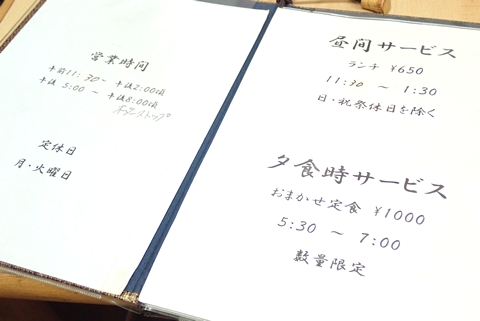 営業時間
午前11:30〜午後2:00頃
午後5:00〜午後8:00頃
定休日
月・火曜日
昼間サービス
ランチ ¥650
11:30 〜 1:30
日・祝祭休日を除く
夕食時サービス
おまかせ定食 ¥1000
5:30 〜 7:00
数量限定